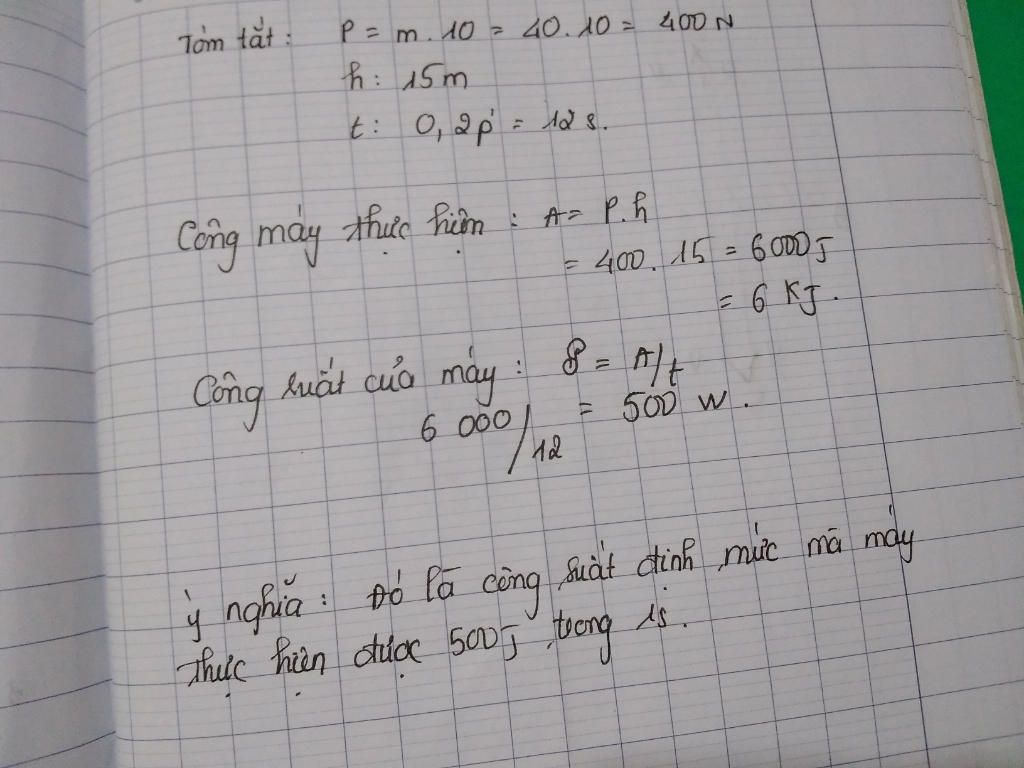 Tóm tắt: P = m.10 = 40.10 = 400N
h: 15m
t: 0,2p' = 12s.
Công máy thực hiện: A = P.h
= 400.15 = 6000J
= 6 KJ.
Công suất của máy: 𝒫 = A/t
6 000/12 = 500 W.
Ý nghĩa: Đó là công suất định mức mà máy
thực hiện được 500J trong 1s.